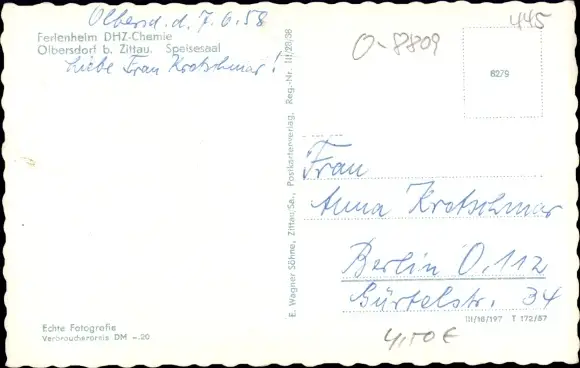 Olbersd. d. 7.6.58
Ferienheim DHZ-Chemie
Olbersdorf b. Zittau. Speisesaal
Liebe Frau Kretschmar!
445
O-8809
8279
E. Wagner Söhne, Zittau/Sa., Postkartenverlag, Reg.-Nr. III/28/38
Frau
Anna Kretschmar
Berlin O.112
Gürtelstr. 34
III/18/197 T 172/57
Echte Fotografie
Verbraucherpreis DM -.20
4,50 €